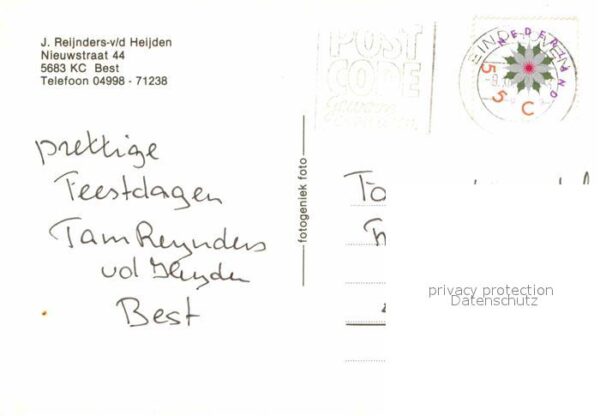 J. Reijnders-v/d Heijden
Nieuwstraat 44
5683 KC Best
Telefoon 04998 - 71238
POST
CODE
Gewoon
EINDHOVEN
NEDERLAND
55 C
prettige
Feestdagen
Fam Reynders
vd Heyden
Best
fotogeniek foto
privacy protection
Datenschutz